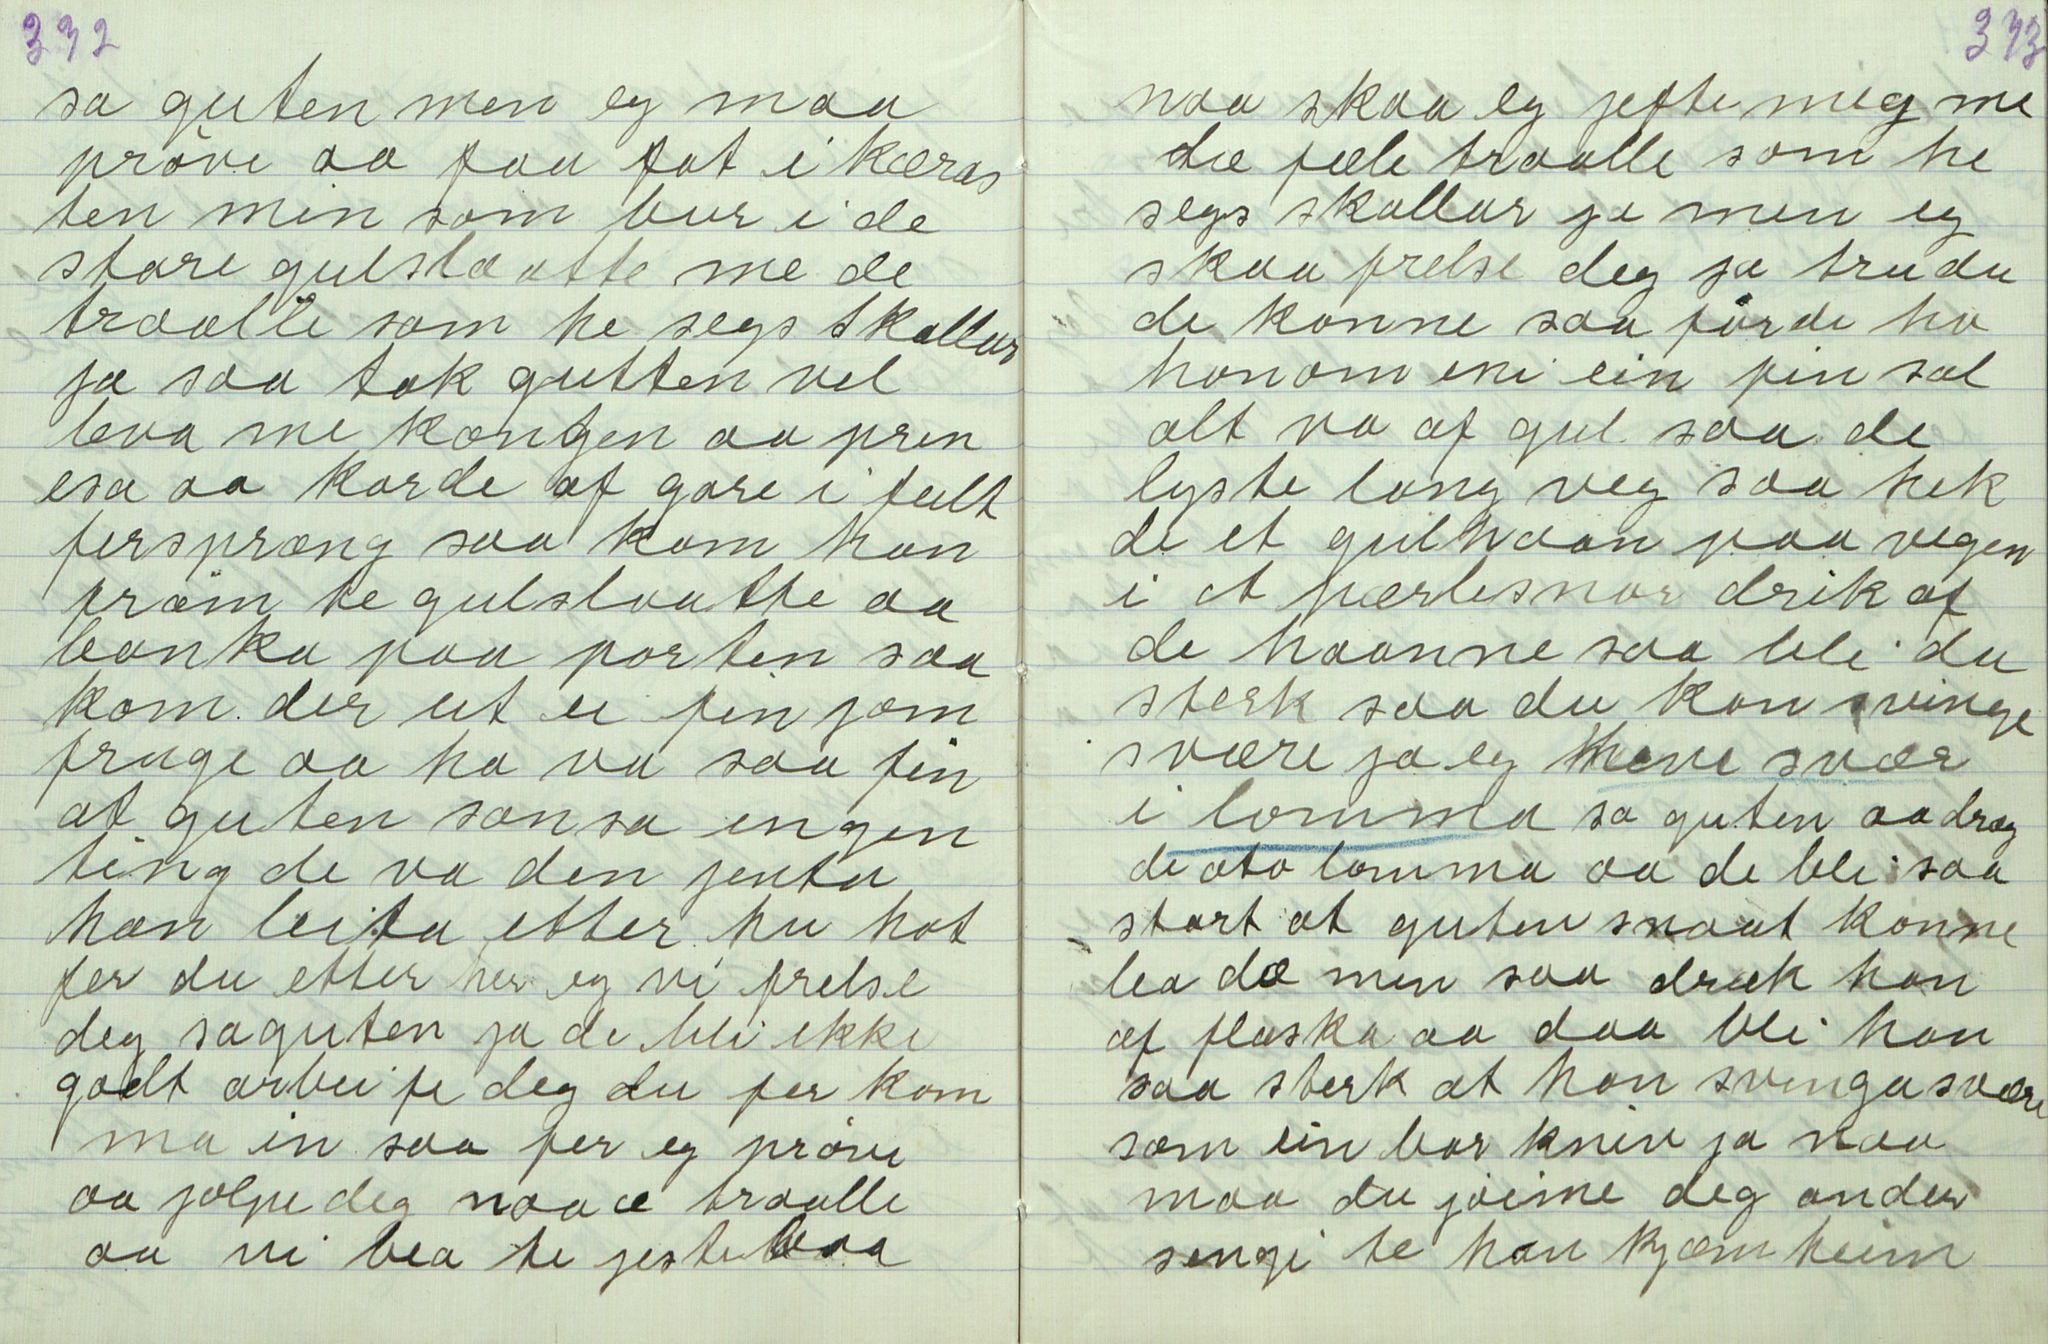 332
sa guten men eg maa
pröve aa faa fat i kæras
ten min som bur i de
store gulslaatte me de
traalle som he segs skallar
ja saa tok gutten vel
leva me kongen aa prin
esa aa korde af gare i fult
fersprang saa kom han
fram te gulslaatte aa
banka paa porten saa
kom der ut ei fin jom
fruge aa ho va saa fin
at guten sansa ingen
ting de va den jenta
han leita etter hu hot
fer du etter her eg vi frelse
deg sa guten ja de bli ikke
godt arbei fe deg du fer kom
ma in saa fer eg pröve
aa jølpe deg naa æ traalle
aa vi bea te jestebaa
333
naa skaa eg jefte meg me
dæ fæle traalle som he
segs skallar ja men eg
skaa frelse deg ja tru du
de konne saa förde ho
honom ini ein fin sal
alt va af gul saa de
lyste lang veg saa hek
de et gulhaan paa vegen
i et pærlesnor drik af
de haanne saa bli du
sterk saa du kan svinge
svære ja eg heve svær
i lomma sa guten aa drog
de oto lomma aa de bli saa
stort at guten snaut konne
lea dæ men saa druk han
af flaska aa daa bli han
saa sterk at han svinga svære
som ein bar kniv ja naa
maa du jöime deg under
sengi te han kjæm heim